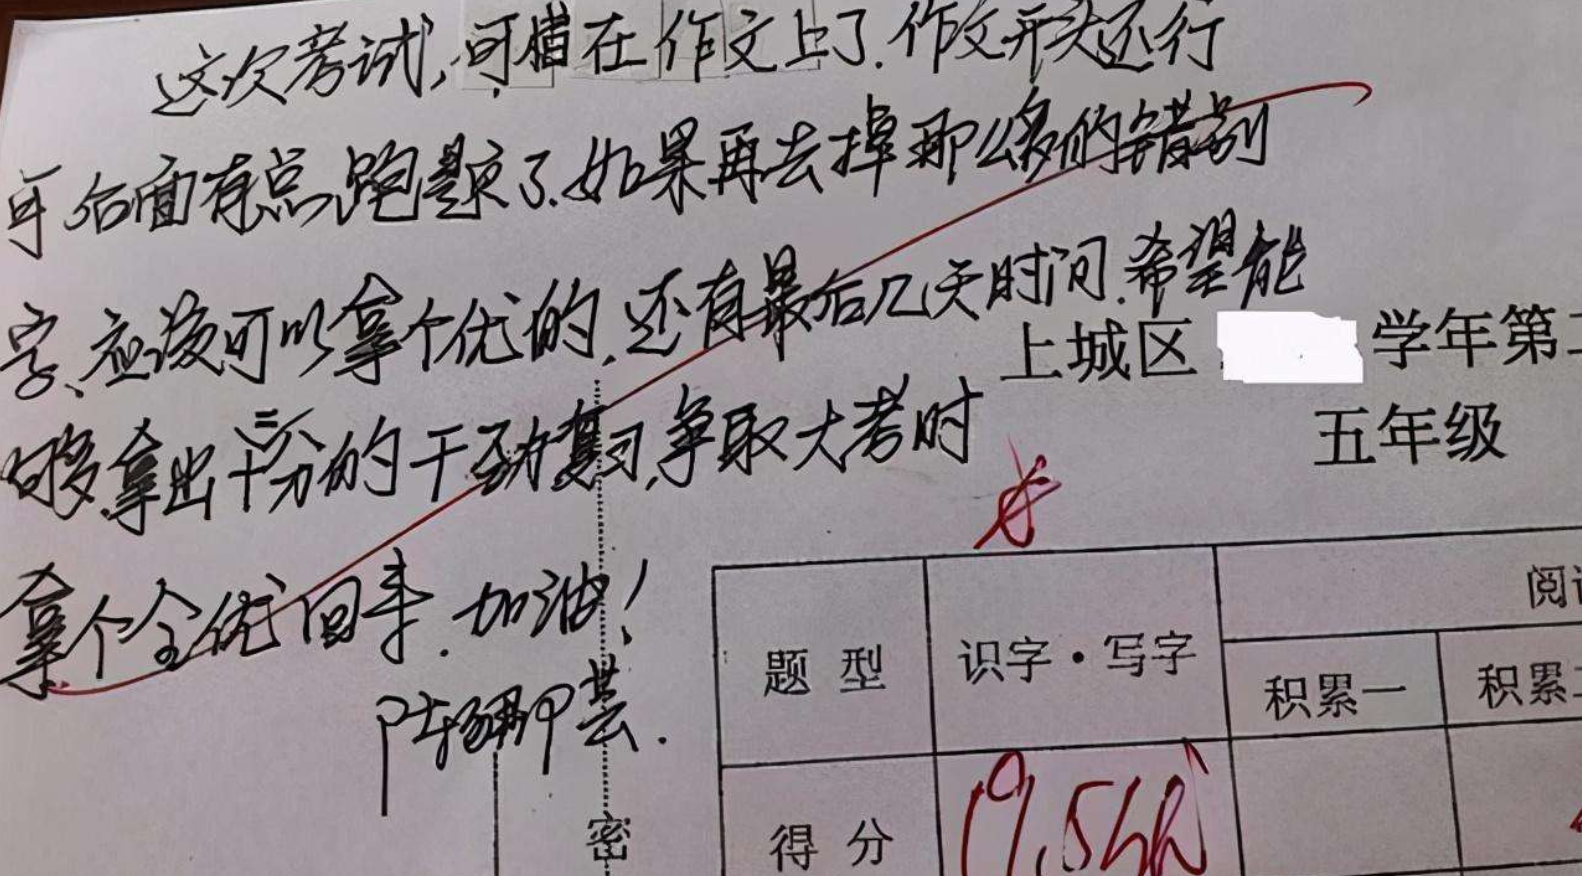 这次考试,可惜在作文上了.作文开头还行
可后面有点跑题了.如果再去掉那么多的错别
字、应该可以拿个优的.还有最后几天时间.希望能
够拿出十二分的干劲复习,争取大考时
拿个全优回来.加油!
上城区 学年第二
五年级
题 型
识字·写字
阅读
积累一
积累二
得 分
19.5
密